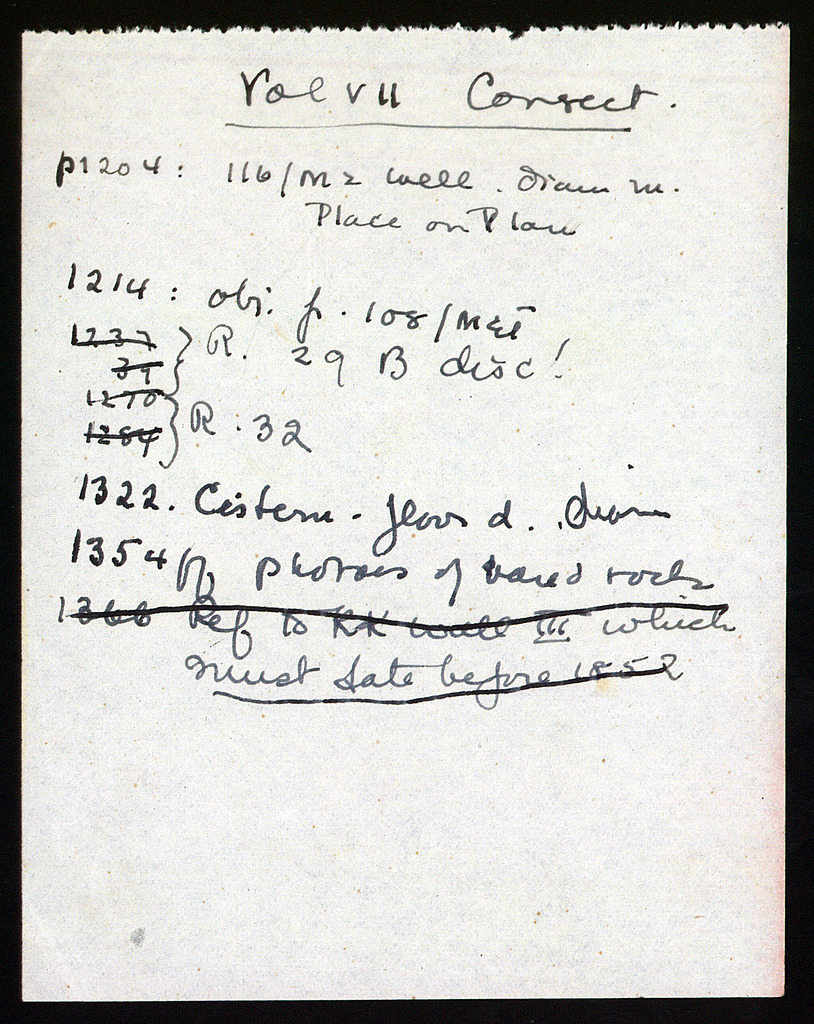 Vol VII Correct.
p1204: 116/M2 well. diam m.
Place on Plan
1214: obj. p. 108/
1237 } R. 29 B disc!
39
1270 } R. 32
1284
1322. Cistern - floor d. diam
1354 photos of rocks
1366 Ref to KK well III which
must date before 1852